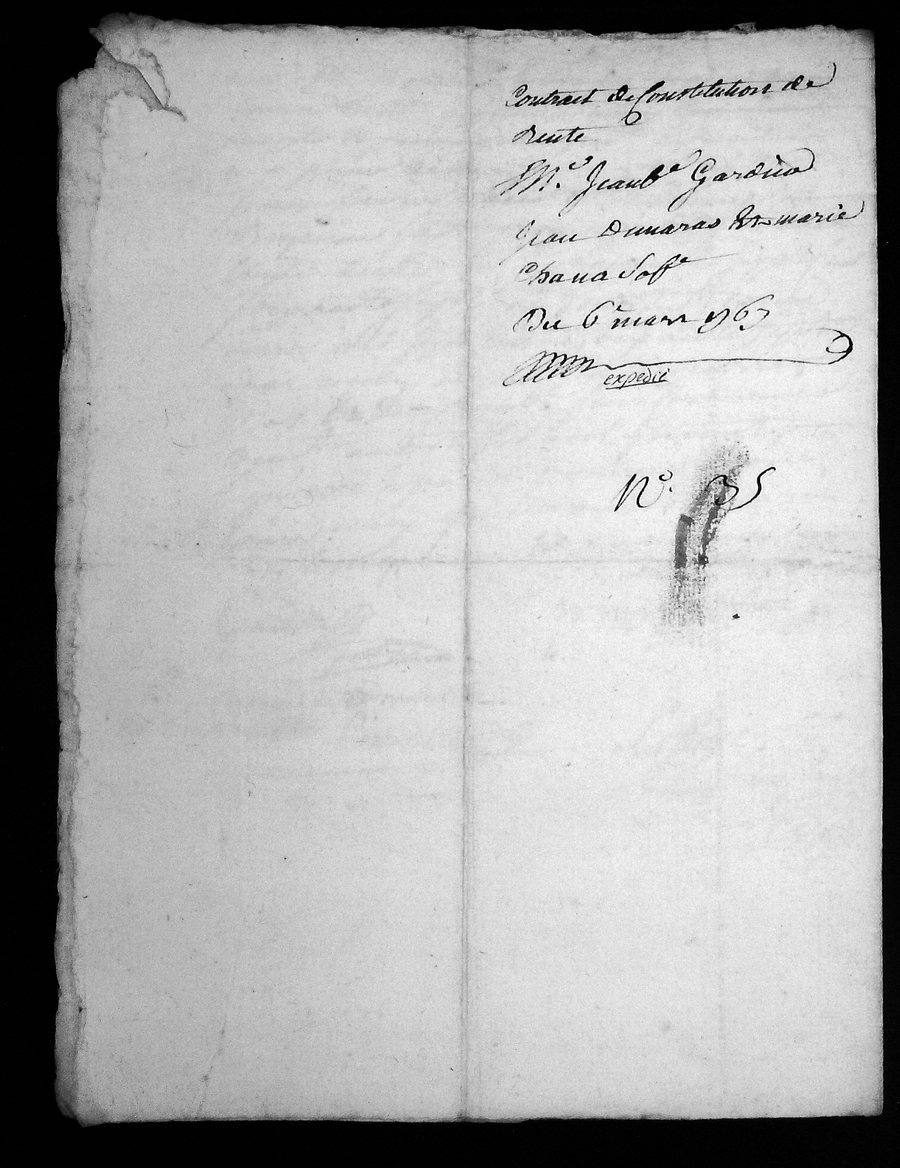 Contract de Constitution de
Rente
Mre. Jean Bte Gardine
Jean Dumaras Et marie
Chana Sa fe
Du 6e mars 1763
expedié
No. 35